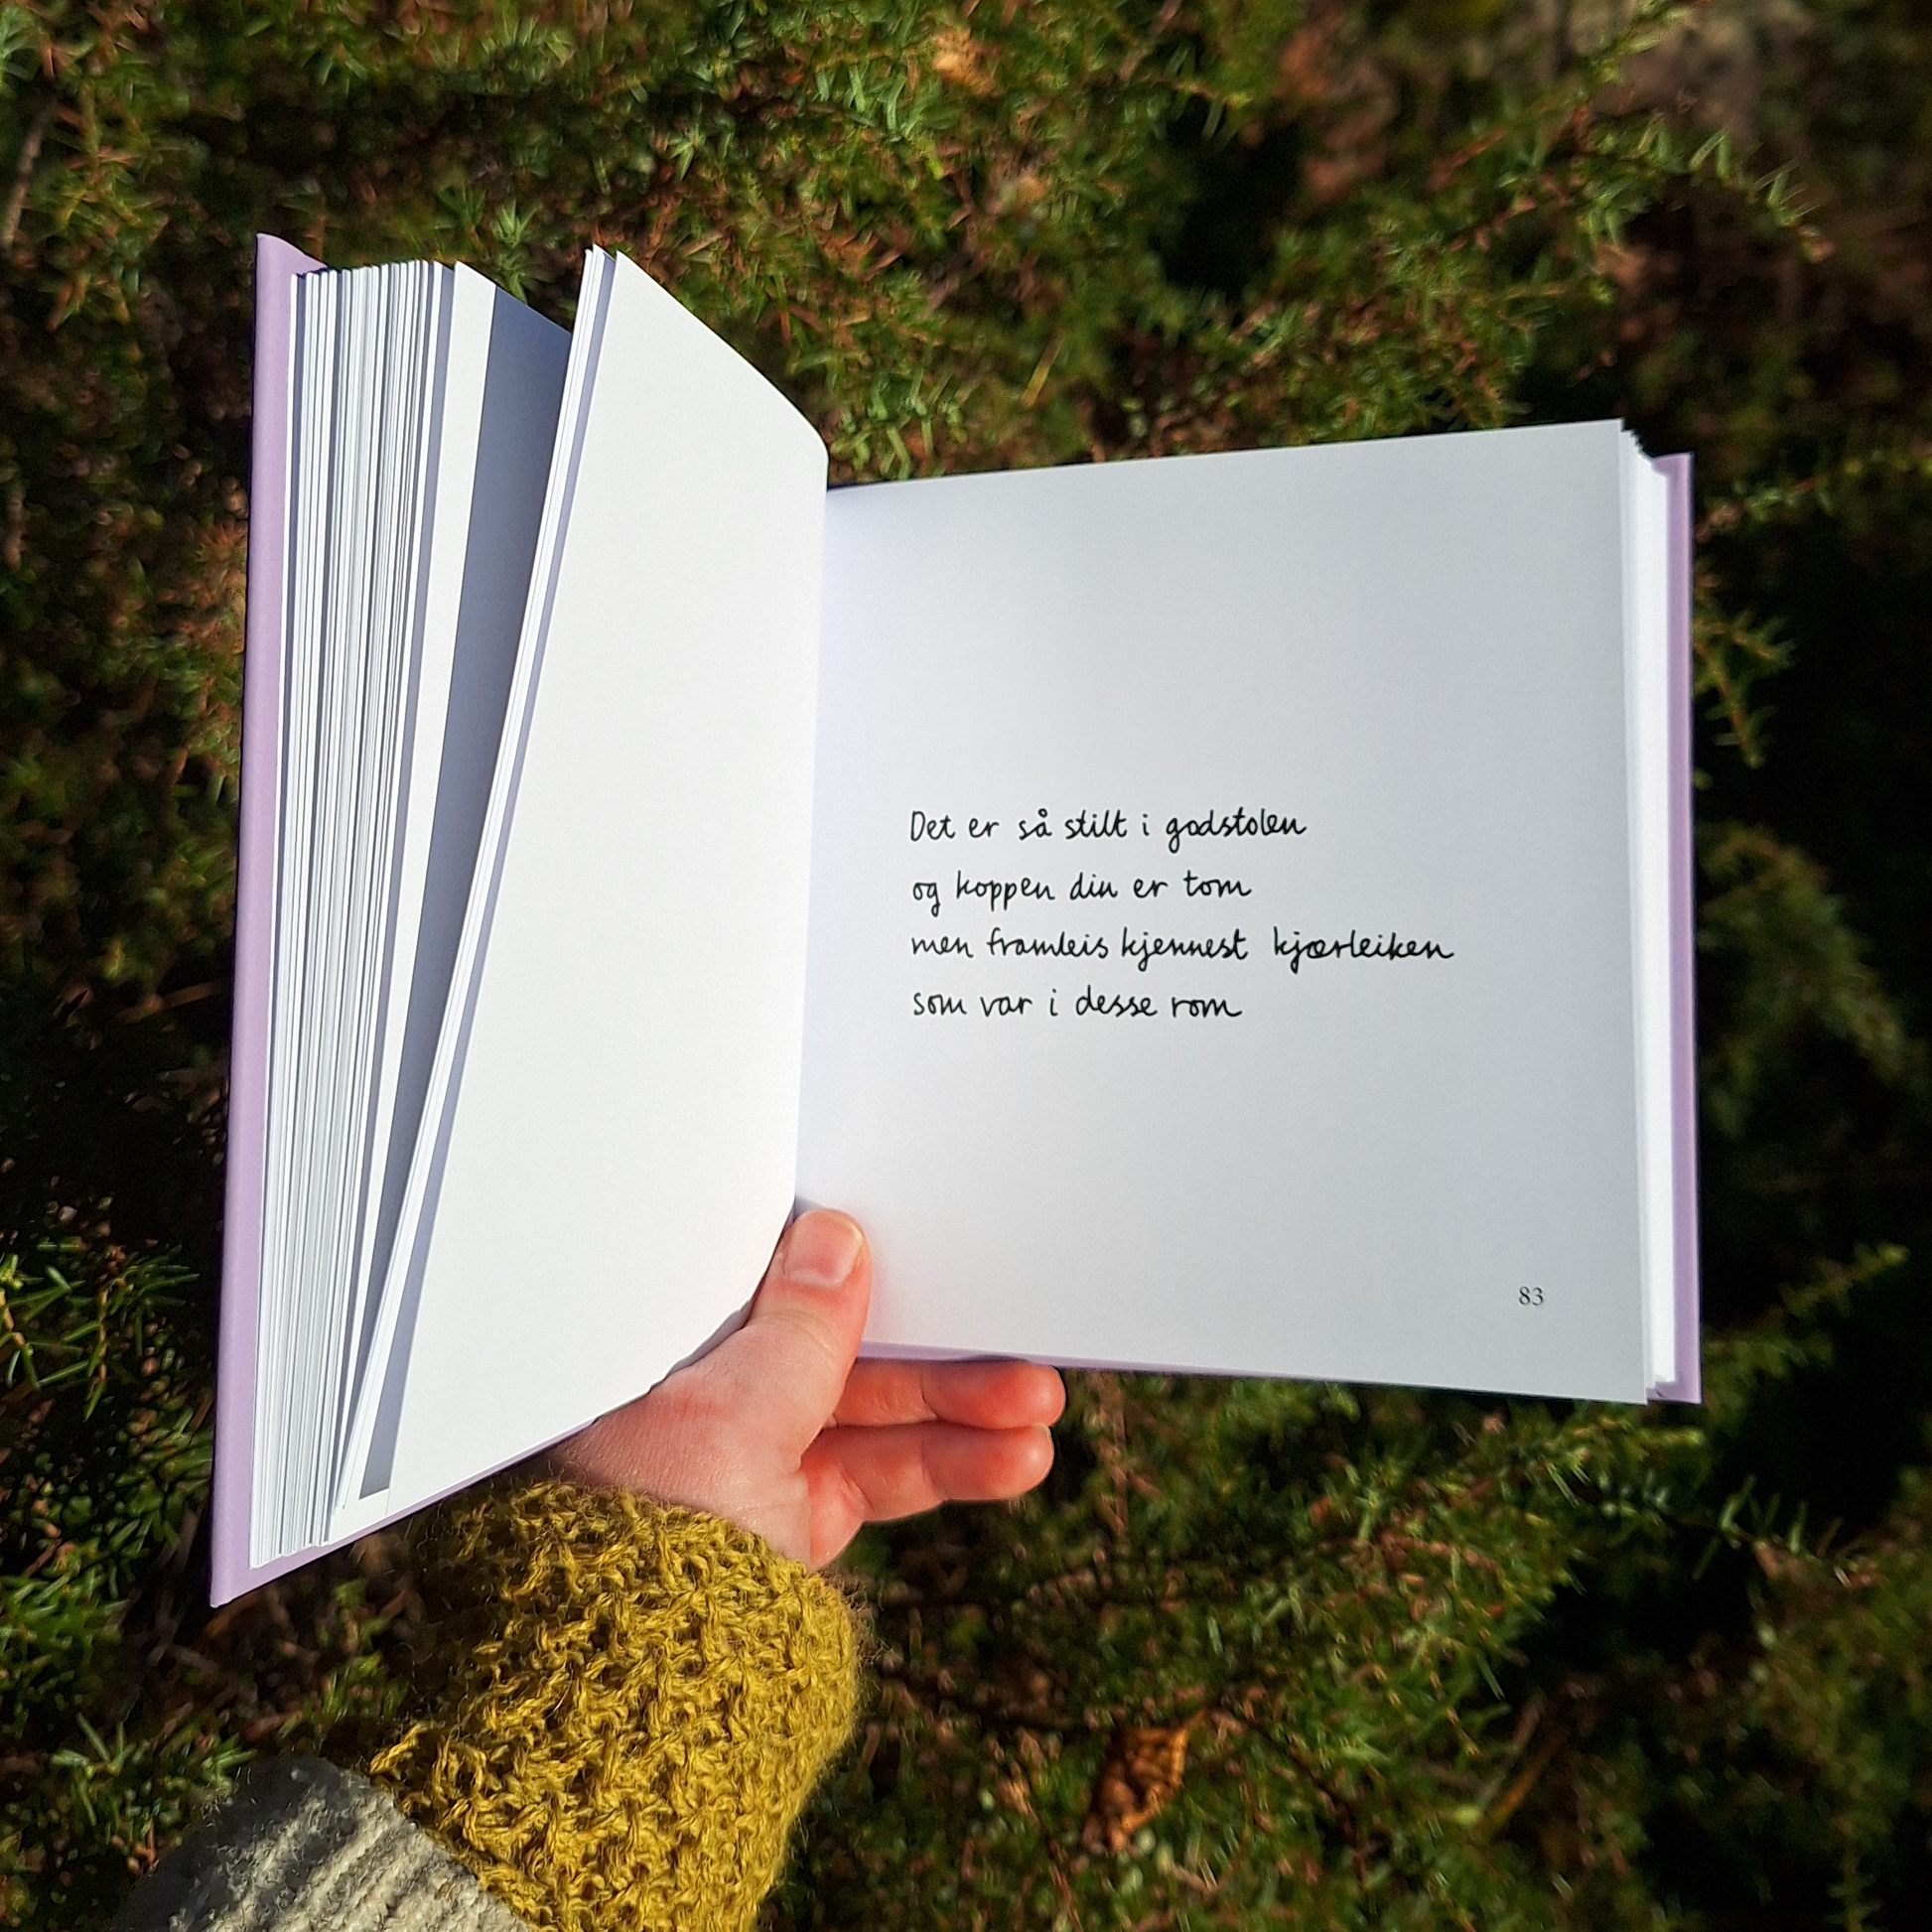 Det er så stilt i godstolen
og koppen din er tom
men framleis kjennest kjærleiken
som var i desse rom
83